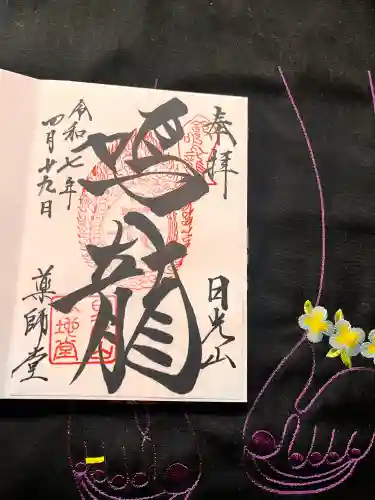 奉拝
日光山
鳴龍
令和七年
四月十九日
薬師堂